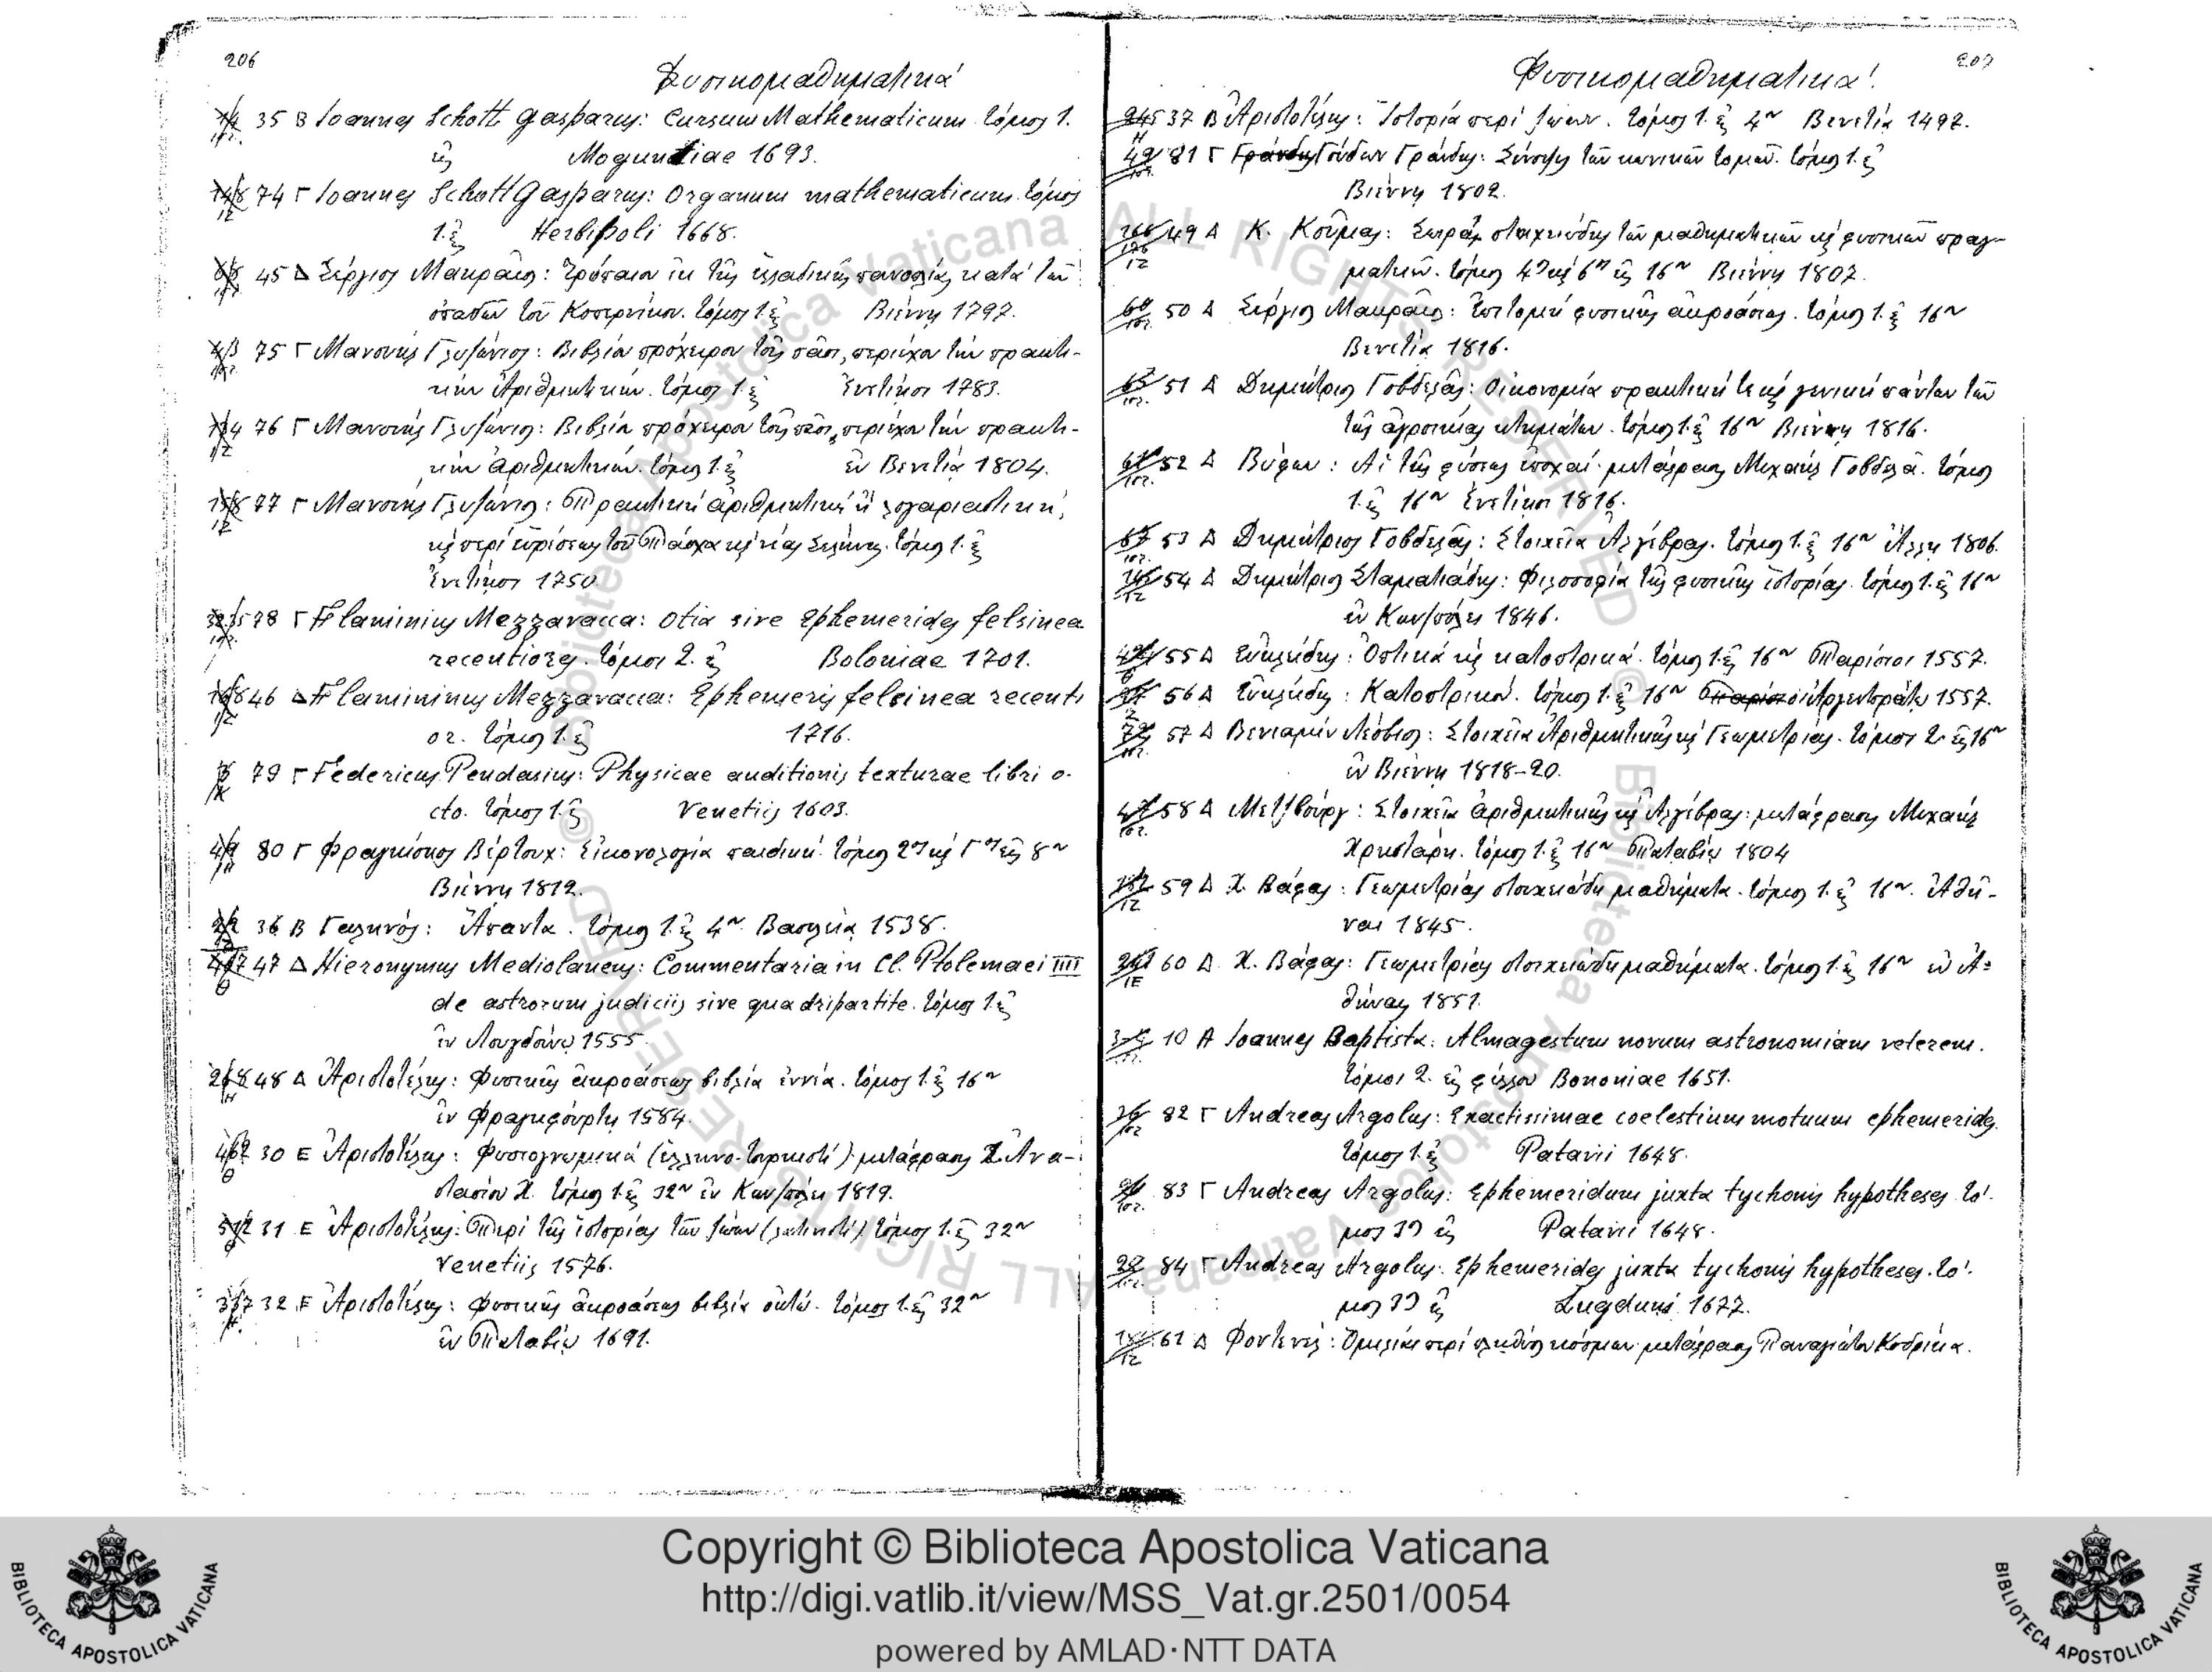 206
Φυσικομαθηματικά
35 Β Ioannes Schott Gasparus: Cursum Mathematicum. τόμος 1.
εἰς Moguntiae 1693.
74 Γ Ioannes Schott Gasparus: Organum mathematicum. τόμος
1. εἰς Herbipoli 1668.
45 Δ Σέργιος Μακραῖος: Τρόπαιον ἐκ τῆς ἑλλαδικῆς πανοπλίας κατὰ τῶν
ὀπαδῶν τοῦ Κοπερνίκου. τόμος 1. εἰς Βιέννῃ 1797.
75 Γ Μανουὴλ Γλυζώνιος: Βιβλίον πρόχειρον τοῖς πᾶσι, περιέχον τὴν πρακτι-
κὴν Ἀριθμητικήν. τόμος 1. εἰς Ἐνετίῃσι 1783.
76 Γ Μανουὴλ Γλυζώνιος: Βιβλίον πρόχειρον τοῖς πᾶσι, περιέχον τὴν πρακτι-
κὴν ἀριθμητικήν. τόμος 1. εἰς ἐν Βενετίᾳ 1804.
77 Γ Μανουὴλ Γλυζώνιος: Πρακτικὴ ἀριθμητικὴ ἢ λογαριαστική,
καὶ περὶ εὑρέσεως τοῦ Πάσχα καὶ νέας Σελήνης. τόμος 1. εἰς
Ἐνετίῃσι 1750.
78 Γ Flaminius Mezzavacca: Otia sive Ephemerides felsinea
recentiores. τόμοι 2. εἰς Boloniae 1701.
46 Δ Flamininus Mezzavacca: Ephemeris felsinea recenti
or. τόμος 1. εἰς 1716.
79 Γ Federicus Pendasius: Physicae auditionis texturae libri o-
cto. τόμος 1. εἰς Venetiis 1603.
80 Γ Φραγκίσκος Βέρτουχ: Εἰκονολογία παιδική. τόμος 2ος καὶ Γος εἰς 8ον
Βιέννη 1812.
36 Β Γαληνός: Ἅπαντα. τόμος 1. εἰς 4ον Βασιλείᾳ 1538.
47 Δ Hieronymus Mediolaneus: Commentaria in Cl. Ptolemaei IIII
de astrorum judiciis sive quadripartite. τόμος 1. εἰς
ἐν Λουγδούνῳ 1555.
48 Δ Ἀριστοτέλης: Φυσικῆς ἀκροάσεως βιβλία ἐννέα. τόμος 1. εἰς 16ον
ἐν Φραγκφούρτῃ 1584.
30 Ε Ἀριστοτέλης: Φυσιογνωμικά (ἑλληνο-τουρκιστί) μετάφρασις Χ. Ἀνα-
στασίου Χ. τόμος 1. εἰς 32ον ἐν Κων/πόλει 1819.
31 Ε Ἀριστοτέλης: Περὶ τῆς ἱστορίας τῶν ζώων (λατινιστί) τόμος 1. εἰς 32ον
Venetiis 1576.
32 Ε Ἀριστοτέλης: Φυσικῆς ἀκροάσεως βιβλία ὀκτώ. τόμος 1. εἰς 32ον
ἐν Παταβίῳ 1691.
207
Φυσικομαθηματικά.
37 Β Ἀριστοτέλης: Ἱστορία περὶ ζώων. τόμος 1. εἰς 4ον Βενετίᾳ 1497.
81 Γ Γουΐδων Γράνδης: Σύνοψις τῶν κωνικῶν τομῶν. τόμος 1. εἰς
Βιέννῃ 1802.
49 Δ Κ. Κούμας: Σειρᾶς στοιχειώδους τῶν μαθηματικῶν καὶ φυσικῶν πραγ-
ματειῶν. τόμος 4ος καὶ 6ος εἰς 16ον Βιέννῃ 1807.
50 Δ Σέργιος Μακραῖος: Ἐπιτομὴ φυσικῆς ἀκροάσεως. τόμος 1. εἰς 16ον
Βενετίᾳ 1816.
51 Δ Δημήτριος Γοβδελᾶς: Οἰκονομία πρακτική τε καὶ γενικὴ πάντων τῶν
τῆς ἀγροικίας κτημάτων. τόμος 1. εἰς 16ον Βιέννῃ 1816.
52 Δ Βύφων: Αἱ τῆς φύσεως ἐποχαί. μετάφρασις Μιχαὴλ Γοβδελᾶ. τόμος
1. εἰς 16ον Ἐνετίῃσι 1816.
53 Δ Δημήτριος Γοβδελᾶς: Στοιχεῖα Ἀλγέβρας. τόμος 1. εἰς 16ον Ἄλλῃ 1806.
54 Δ Δημήτριος Σταματιάδης: Φιλοσοφία τῆς φυσικῆς ἱστορίας. τόμος 1. εἰς 16ον
ἐν Κων/πόλει 1846.
55 Δ Εὐκλείδης: Ὀπτικὰ καὶ κατοπτρικά. τόμος 1. εἰς 16ον Παρίσιοι 1557.
56 Δ Εὐκλείδης: Κατοπτρικά. τόμος 1. εἰς 16ον Ἀργεντοράτῳ 1557.
57 Δ Βενιαμὶν Λέσβιος: Στοιχεῖα Ἀριθμητικῆς καὶ Γεωμετρίας. τόμοι 2. εἰς 16ον
ἐν Βιέννῃ 1818-20.
58 Δ Μετζβούργ: Στοιχεῖα ἀριθμητικῆς καὶ Ἀλγέβρας: μετάφρασις Μιχαὴλ
Χρησταρῆ. τόμος 1. εἰς 16ον Παταβίῳ 1804
59 Δ Χ. Βάφας: Γεωμετρίας στοιχειώδη μαθήματα. τόμος 1. εἰς 16ον. Ἀθῆ-
ναι 1845.
60 Δ. Χ. Βάφας: Γεωμετρίας στοιχειώδη μαθήματα. τόμος 1. εἰς 16ον ἐν Ἀ-
θήναις 1851.
10 Α Ioannes Baptista: Almagestum novum astronomiam veterem.
τόμοι 2. εἰς φύλλον Bononiae 1651.
82 Γ Andreas Argolus: Exactissimae coelestium motuum ephemerides.
τόμος 1. εἰς Patavii 1648.
83 Γ Andreas Argolus: Ephemeridum juxta tychonis hypotheses. τό-
μος 3ος εἰς Patavii 1648.
84 Γ Andreas Argolus: Ephemerides juxta tychonis hypotheses. τό-
μος 3ος εἰς Lugduni 1677.
61 Δ Φοντενέλ: Ὁμιλίαι περὶ πληθύος κόσμων μετάφρασις Παναγιώτου Κοδρικᾶ.
Copyright © Biblioteca Apostolica Vaticana
http://digi.vatlib.it/view/MSS_Vat.gr.2501/0054
powered by AMLAD·NTT DATA
BIBLIOTECA APOSTOLICA VATICANA
BIBLIOTECA APOSTOLICA VATICANA